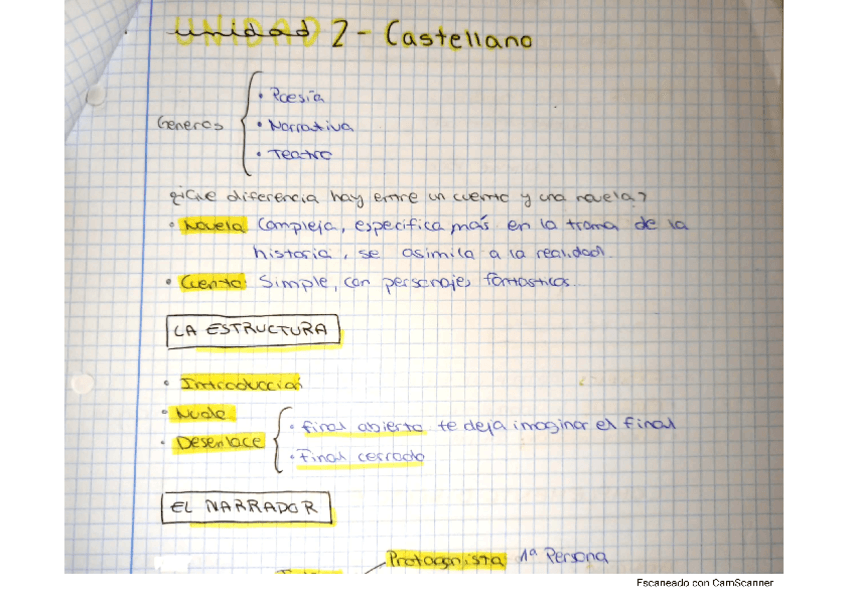 unidad 2 - Castellano
Generos
• Poesía
• Narrativa
• Teatro
¿Que diferencia hay entre un cuento y una novela?
• Novela Compleja, especifica más en la trama de la
historia, se asimila a la realidad.
• Cuento: Simple, con personajes fantasticos.
LA ESTRUCTURA
• Introducción
• Nudo
• Desenlace
• final abierto te deja imaginar el final
• Final cerrado
EL NARRADOR
Protagonista 1ª Persona
Escaneado con CamScanner